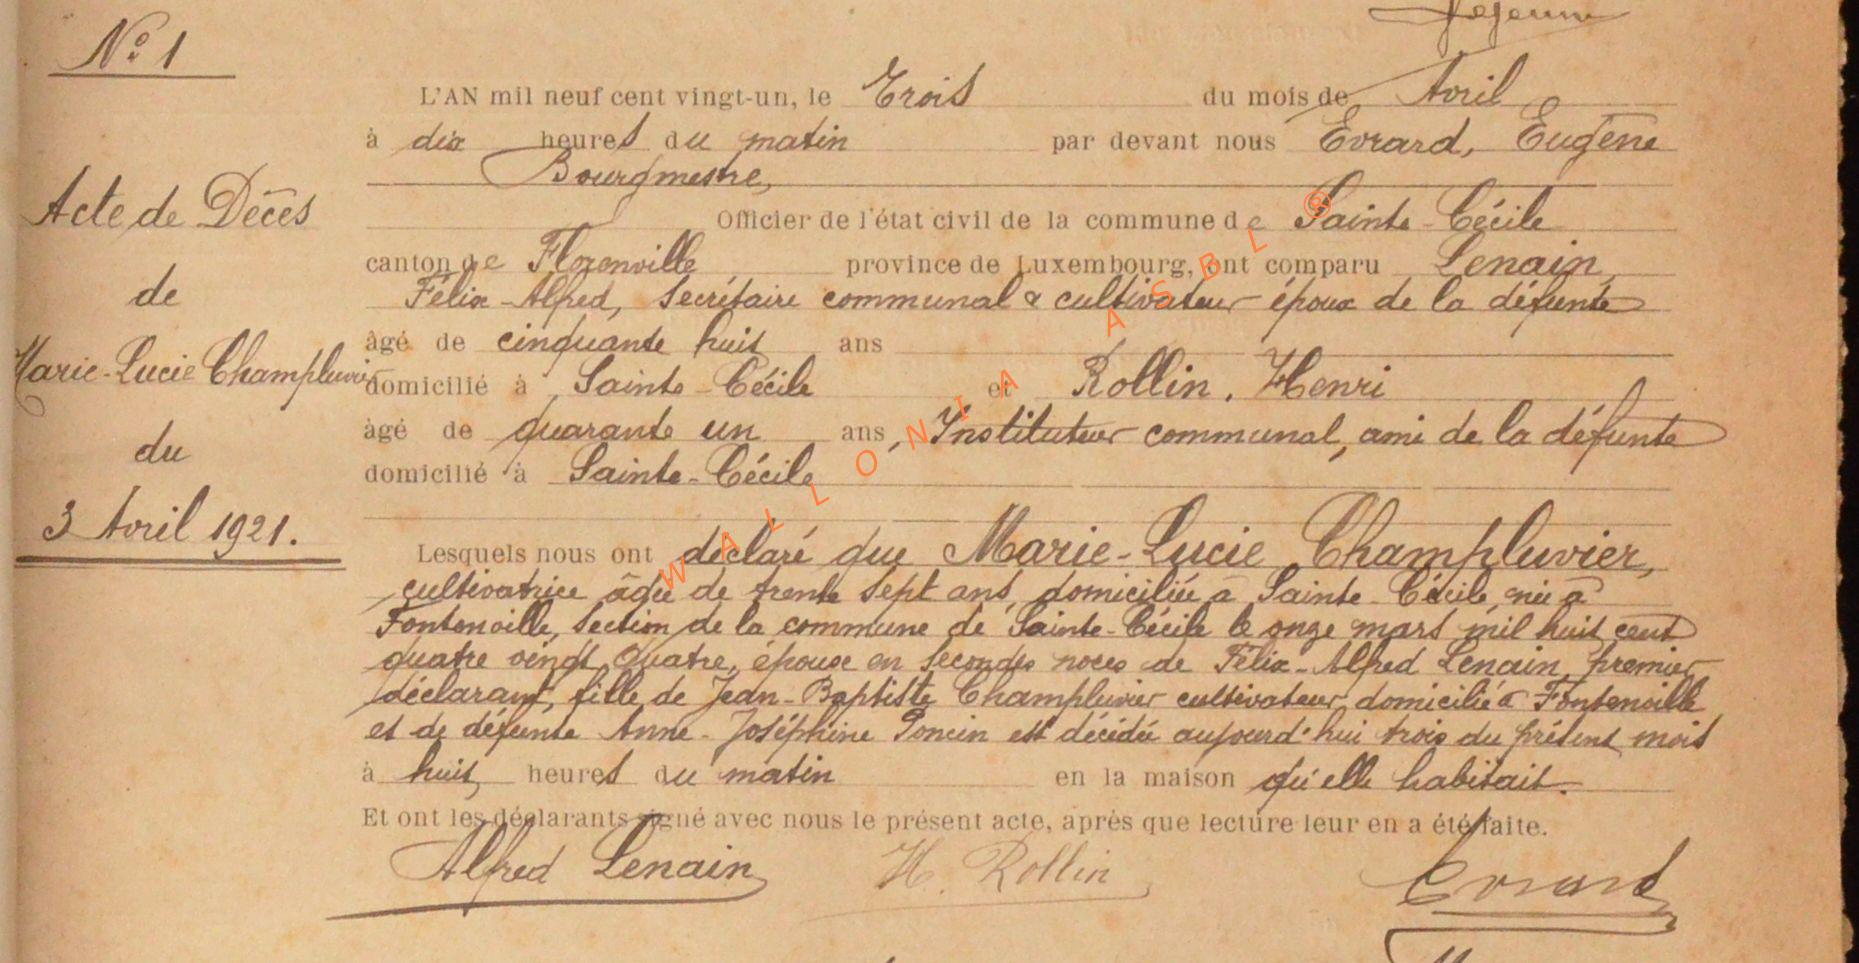 Lejeune
N° 1
L'AN mil neuf cent vingt-un, le Trois du mois de Avril
à dix heures du matin par devant nous Evrard, Eugène
Bourgmestre,
Acte de Décès
Officier de l'état civil de la commune de Sainte-Cécile
canton de Florenville province de Luxembourg, ont comparu Lenain,
de
Félix-Alfred, Secrétaire communal & cultivateur époux de la défunte
âgé de cinquante huit ans
Marie-Lucie Champluvier
domicilié à Sainte-Cécile et Rollin, Henri
âgé de quarante un ans, Instituteur communal, ami de la défunte
du
domicilié à Sainte-Cécile
3 Avril 1921.
Lesquels nous ont déclaré que Marie-Lucie Champluvier,
cultivatrice âgée de trente sept ans, domiciliée à Sainte-Cécile, née à
Fontenoille, section de la commune de Sainte-Cécile le onze mars mil huit cent
quatre vingt quatre, épouse en secondes noces de Félix-Alfred Lenain, premier
déclarant, fille de Jean-Baptiste Champluvier cultivateur domicilié à Fontenoille
et de défunte Anne-Joséphine Poncin est décédée aujourd'hui trois du présent mois
à huit heures du matin en la maison qu'elle habitait.
Et ont les déclarants signé avec nous le présent acte, après que lecture leur en a été faite.
Alfred Lenain H. Rollin Evrard
WALLONIA ASBL ®